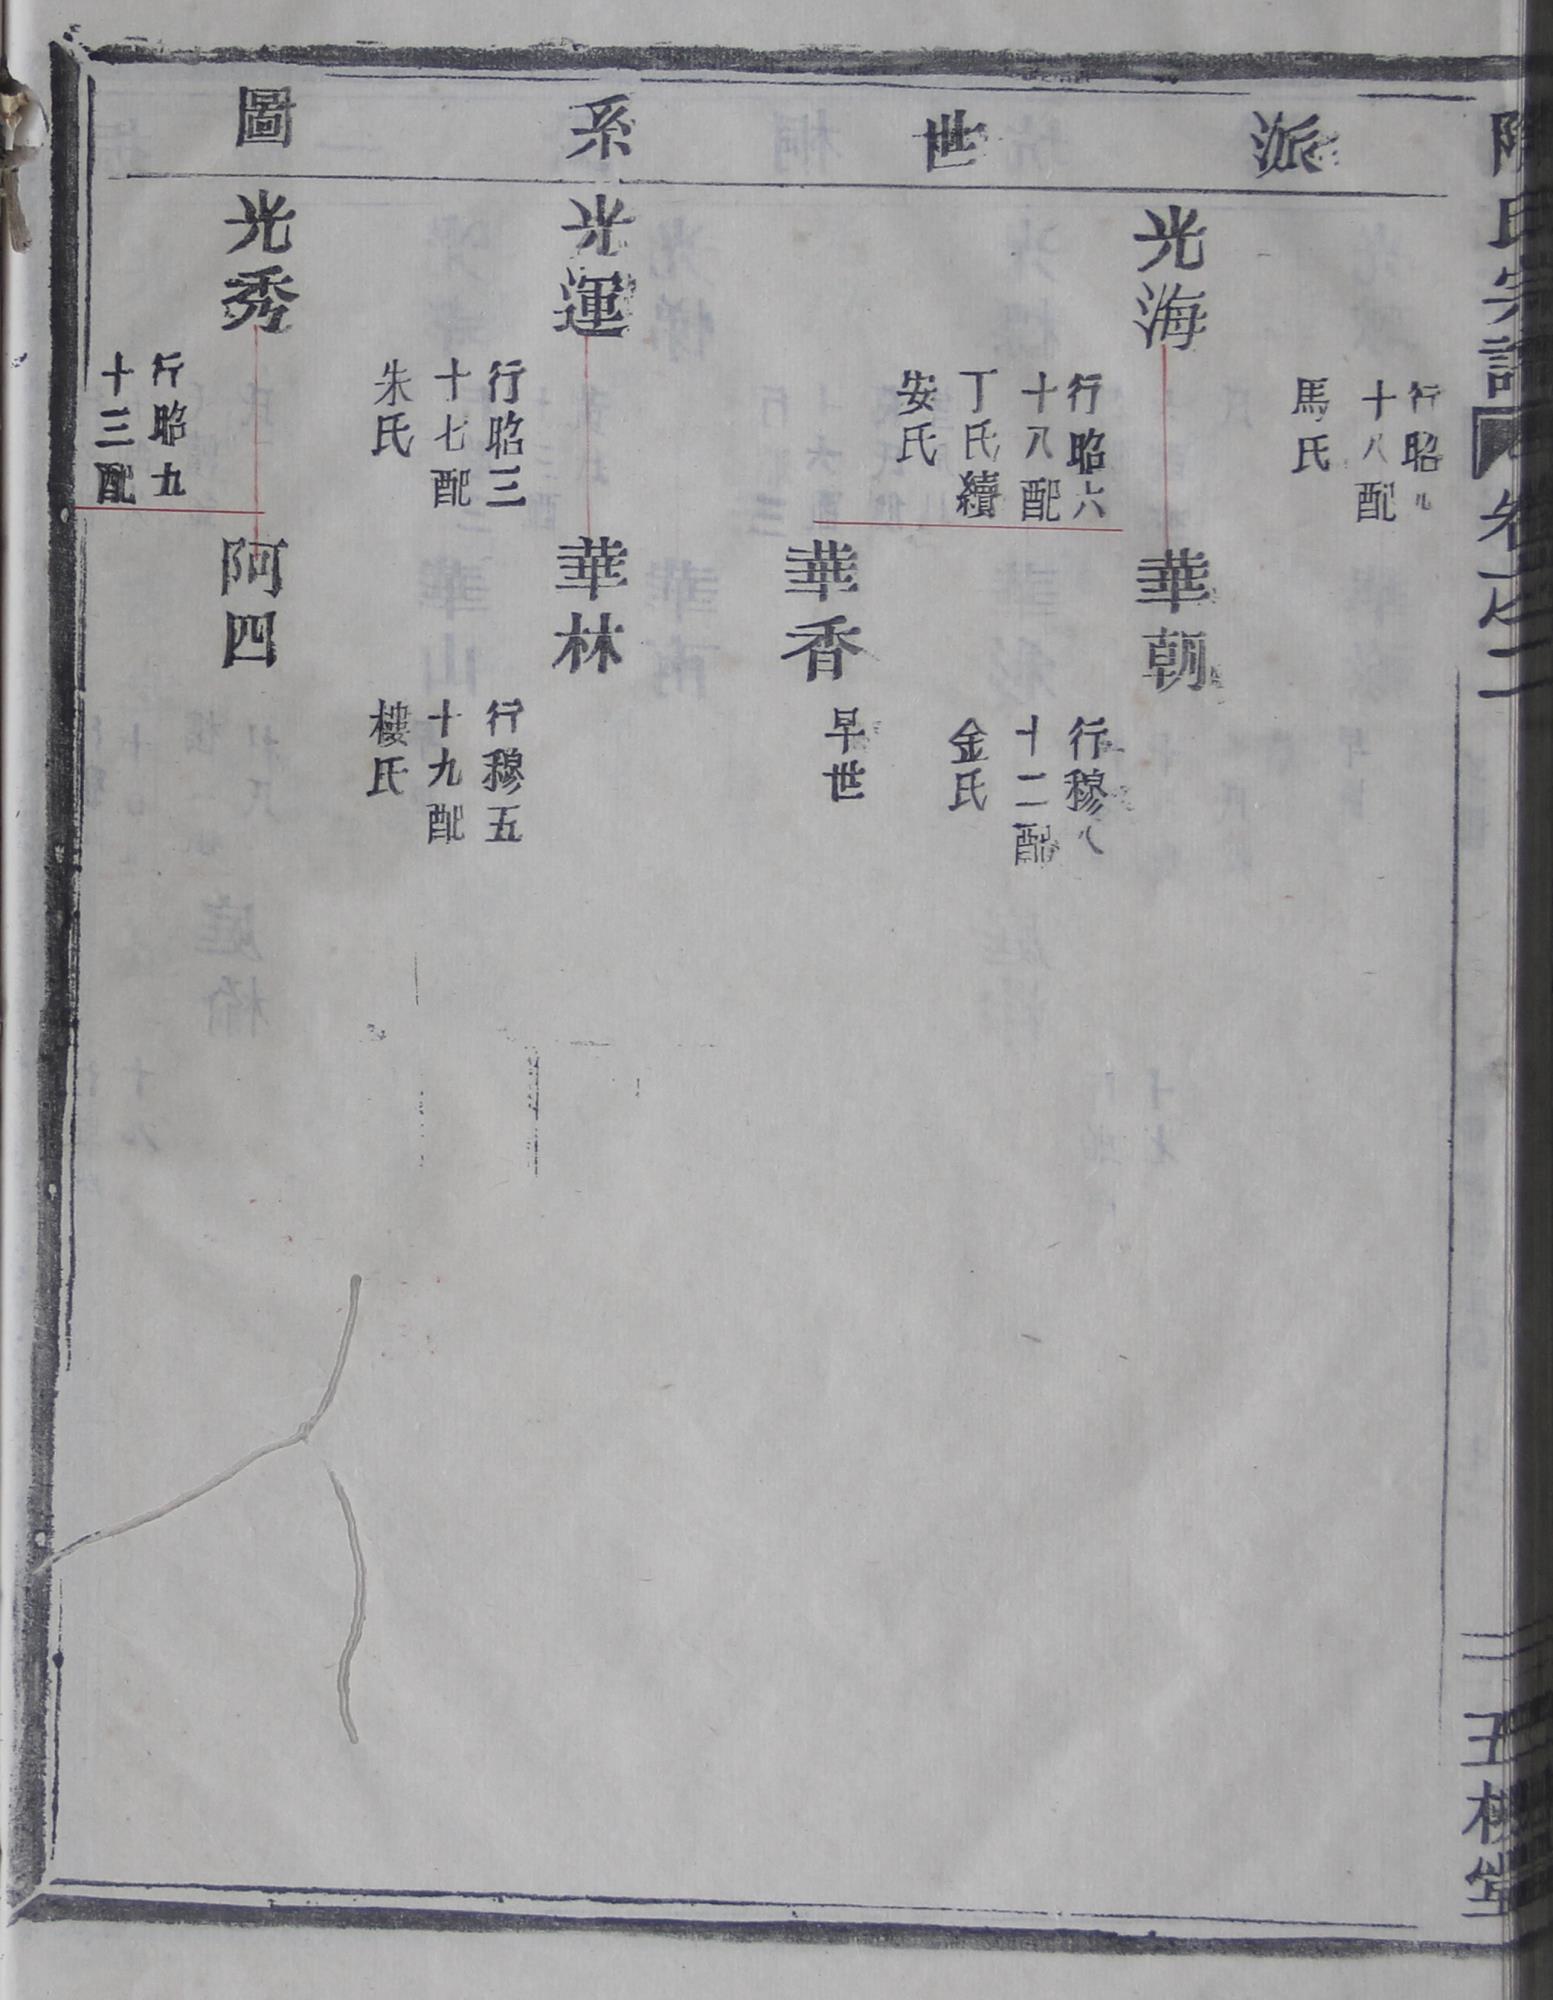 陳氏宗譜
卷之二
五桂堂
派世系圖
行昭八
十八配
馬氏
光海
行昭六
十八配
丁氏續
安氏
華朝
行穆八
十二配
金氏
華香
早世
光運
行昭三
十七配
朱氏
華林
行穆五
十九配
樓氏
光秀
行昭九
十三配
阿四